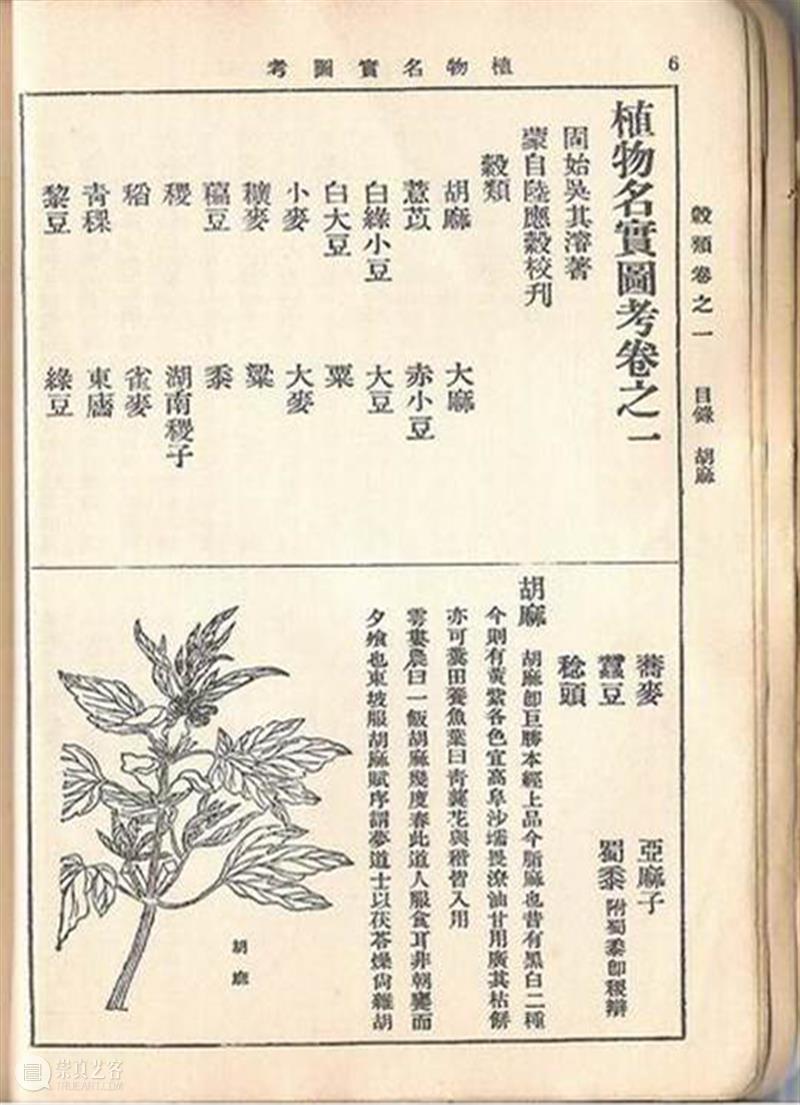 6
植物名實圖考
穀類卷之一 目錄 胡麻
植物名實圖考卷之一
固始吳其濬著
蒙自陸應穀校刊
穀類
胡麻 大麻
薏苡 赤小豆
白綠小豆 大豆
白大豆 粟
小麥 大麥
穬麥 粱
穭豆 黍
稷 湖南稷子
稻 雀麥
青稞 東廧
黎豆 綠豆
蕎麥 亞麻子
蠶豆 蜀黍 附蜀黍即稷辯
稔頭
胡麻 胡麻即巨勝本經上品今脂麻也昔有黑白二種
今則有黃紫各色宜高阜沙壖畏潦油甘用廣其枯餅
亦可糞田養魚葉曰青蘘花與稭皆入用
雩婁農曰一飯胡麻幾度春此道人服食耳非朝饔而
夕飧也東坡服胡麻賦序謂夢道士以茯苓燥尚雜胡
胡麻
崇真艺客
TRUEART.COM